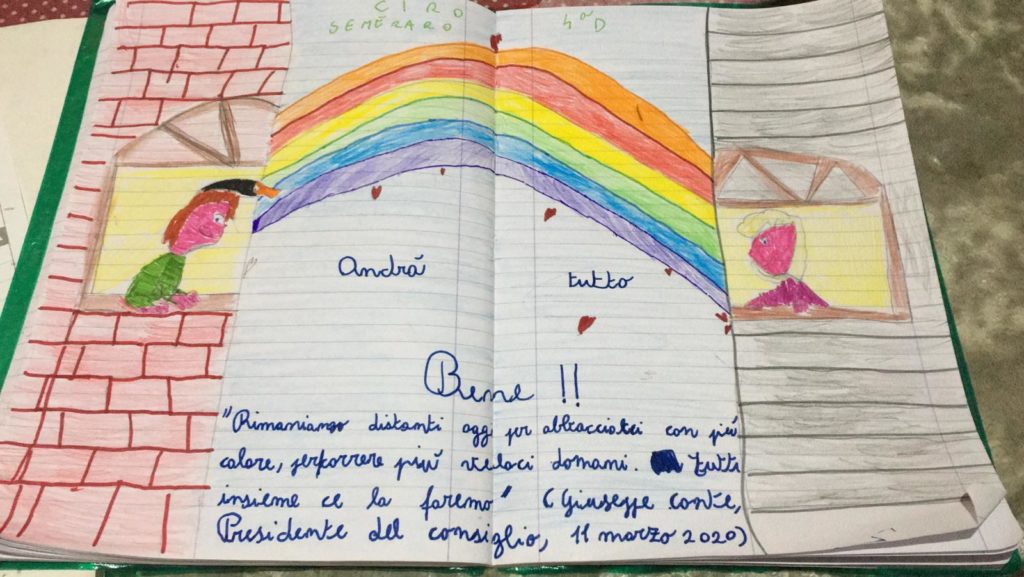 CIRO 4ª D
SEMERARO
Andrá
tutto
Bene !!
"Rimaniamo distanti oggi per abbracciarci con più
calore, per correre più veloci domani. tutti
insieme ce la faremo" (Giuseppe Conte,
Presidente del consiglio, 11 marzo 2020)